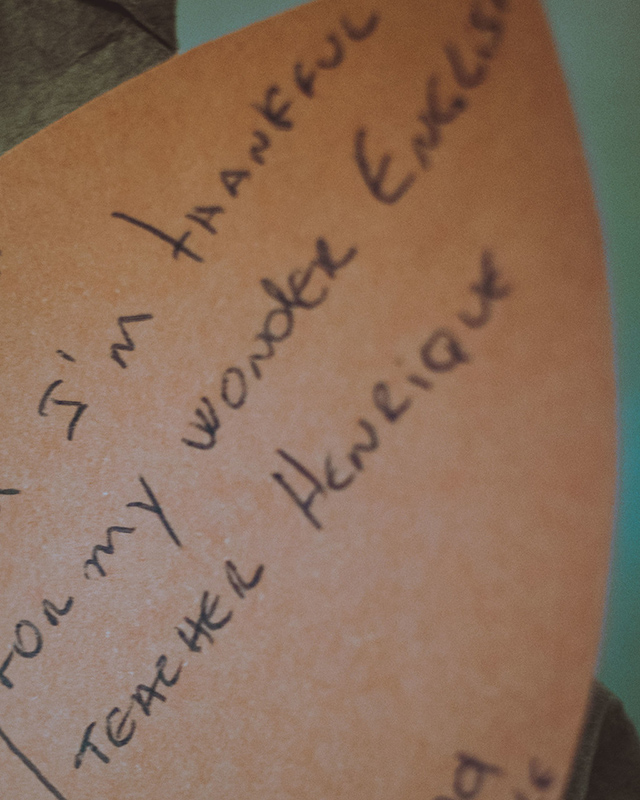 I'm THANKFUL
FOR my WONDER ENGLISH
TEACHER HENRIQUE